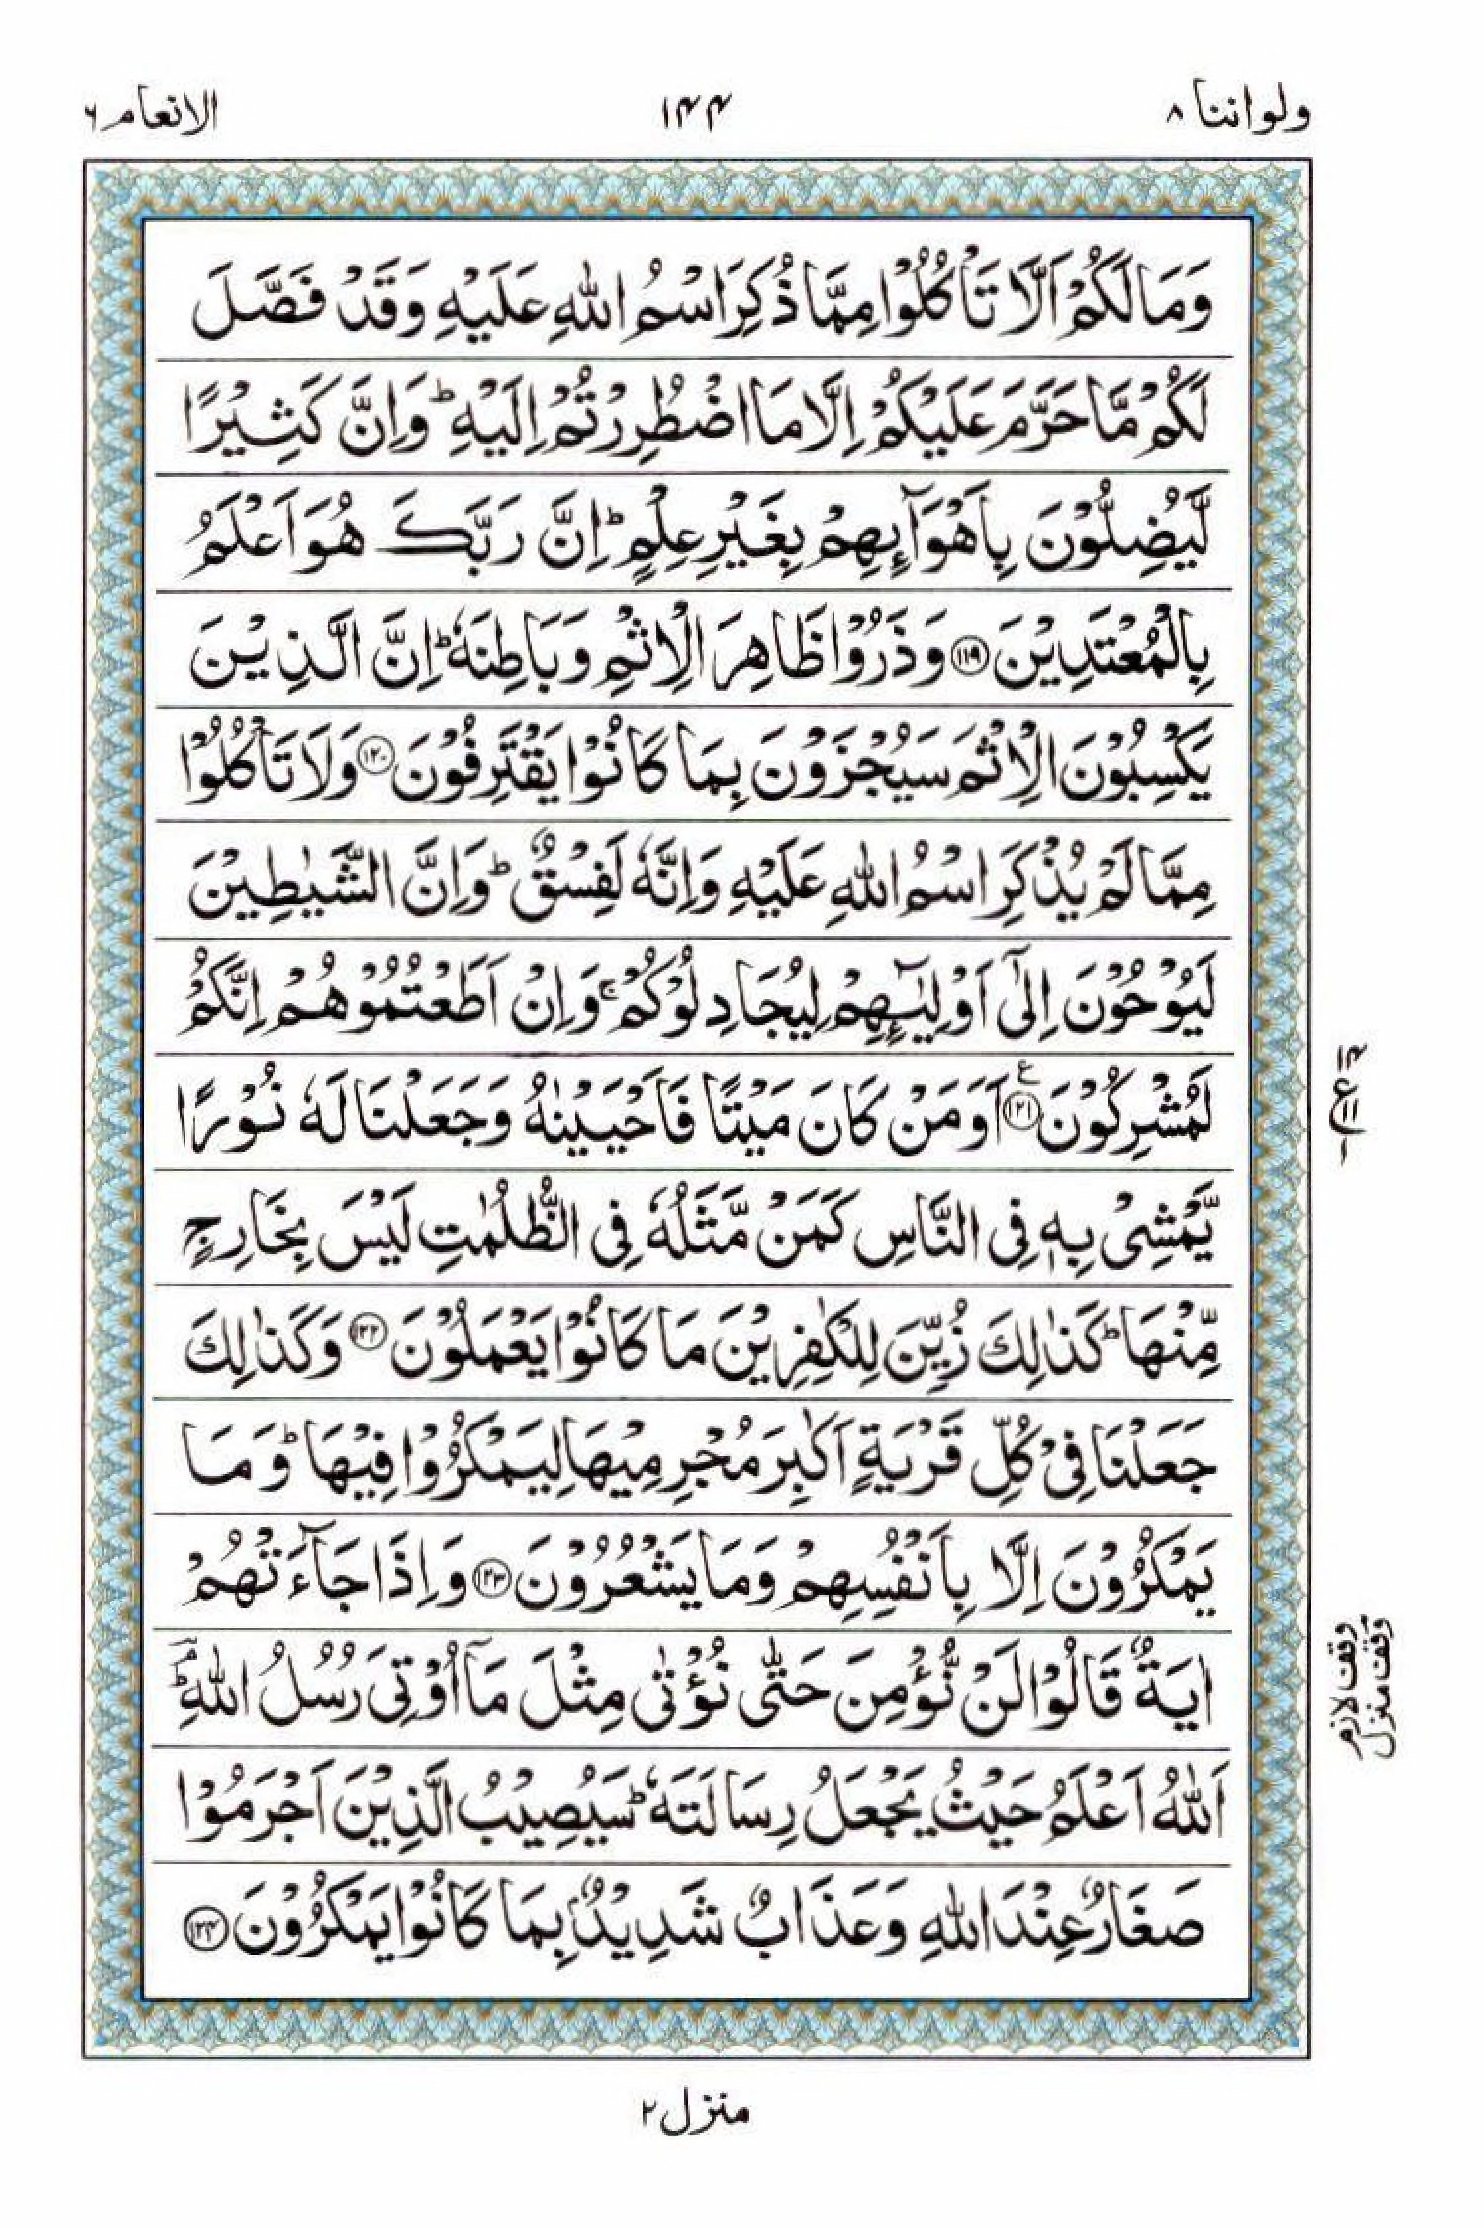 ولواننا ۸
۱۴۴
الانعام ۶
وَمَا لَكُمْ اَلَّا تَاْكُلُوْا مِمَّا ذُكِرَ اسْمُ اللّٰهِ عَلَيْهِ وَقَدْ فَصَّلَ
لَكُمْ مَّا حَرَّمَ عَلَيْكُمْ اِلَّا مَا اضْطُرِرْتُمْ اِلَيْهِ ؕ وَاِنَّ كَثِيْرًا
لَّيُضِلُّوْنَ بِاَهْوَآئِهِمْ بِغَيْرِ عِلْمٍ ؕ اِنَّ رَبَّكَ هُوَ اَعْلَمُ
بِالْمُعْتَدِيْنَ ۝۱۱۹ وَذَرُوْا ظَاهِرَ الْاِثْمِ وَبَاطِنَهٗ ؕ اِنَّ الَّذِيْنَ
يَكْسِبُوْنَ الْاِثْمَ سَيُجْزَوْنَ بِمَا كَانُوْا يَقْتَرِفُوْنَ ۝۱۲۰ وَلَا تَاْكُلُوْا
مِمَّا لَمْ يُذْكَرِ اسْمُ اللّٰهِ عَلَيْهِ وَاِنَّهٗ لَفِسْقٌ ؕ وَاِنَّ الشَّيٰطِيْنَ
لَيُوْحُوْنَ اِلٰٓى اَوْلِيٰٓئِهِمْ لِيُجَادِلُوْكُمْ ۚ وَاِنْ اَطَعْتُمُوْهُمْ اِنَّكُمْ
لَمُشْرِكُوْنَ ۝۱۲۱ ع اَوَمَنْ كَانَ مَيْتًا فَاَحْيَيْنٰهُ وَجَعَلْنَا لَهٗ نُوْرًا
يَّمْشِىْ بِهٖ فِى النَّاسِ كَمَنْ مَّثَلُهٗ فِى الظُّلُمٰتِ لَيْسَ بِخَارِجٍ
مِّنْهَا ؕ كَذٰلِكَ زُيِّنَ لِلْكٰفِرِيْنَ مَا كَانُوْا يَعْمَلُوْنَ ۝۱۲۲ وَكَذٰلِكَ
جَعَلْنَا فِىْ كُلِّ قَرْيَةٍ اَكٰبِرَ مُجْرِمِيْهَا لِيَمْكُرُوْا فِيْهَا ؕ وَمَا
يَمْكُرُوْنَ اِلَّا بِاَنْفُسِهِمْ وَمَا يَشْعُرُوْنَ ۝۱۲۳ وَاِذَا جَآءَتْهُمْ
اٰيَةٌ قَالُوْا لَنْ نُّؤْمِنَ حَتّٰى نُؤْتٰى مِثْلَ مَاۤ اُوْتِىَ رُسُلُ اللّٰهِ ؕۘ
اَللّٰهُ اَعْلَمُ حَيْثُ يَجْعَلُ رِسَالَتَهٗ ؕ سَيُصِيْبُ الَّذِيْنَ اَجْرَمُوْا
صَغَارٌ عِنْدَ اللّٰهِ وَعَذَابٌ شَدِيْدٌۢ بِمَا كَانُوْا يَمْكُرُوْنَ ۝۱۲۴
۱۴
ع
۱۱
۱
وقف لازم
وقف منزل
منزل ۲